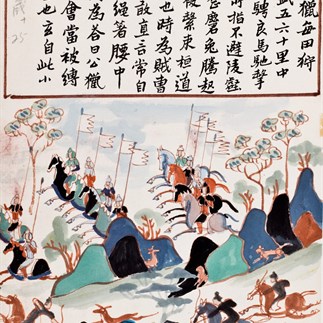 獵每田狩
五六十里中
騁良馬馳擊
所指不避陵壑
兔騰
被繫束桓道
也時為賊曹
敢直言常自
繩著腰中
為答曰公獵
會當被縛
也玄自此小
25